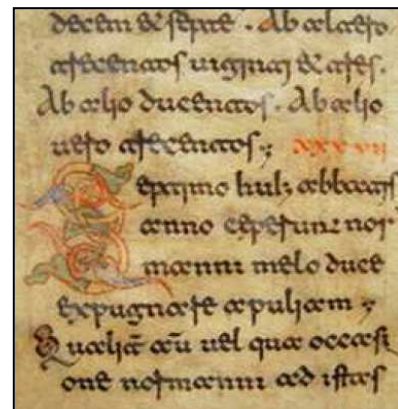 decem & septē . Ab altero
trecentos uiginti & tres.
Ab alio ducentos. Ab alio
uero trecentos; XXXVII
Septimo hui; abbatis
anno ceperunt nor
manni melo duce
expugnare apuliam;
Qualit̄ aū uel qua occasi
one normanni ad istas